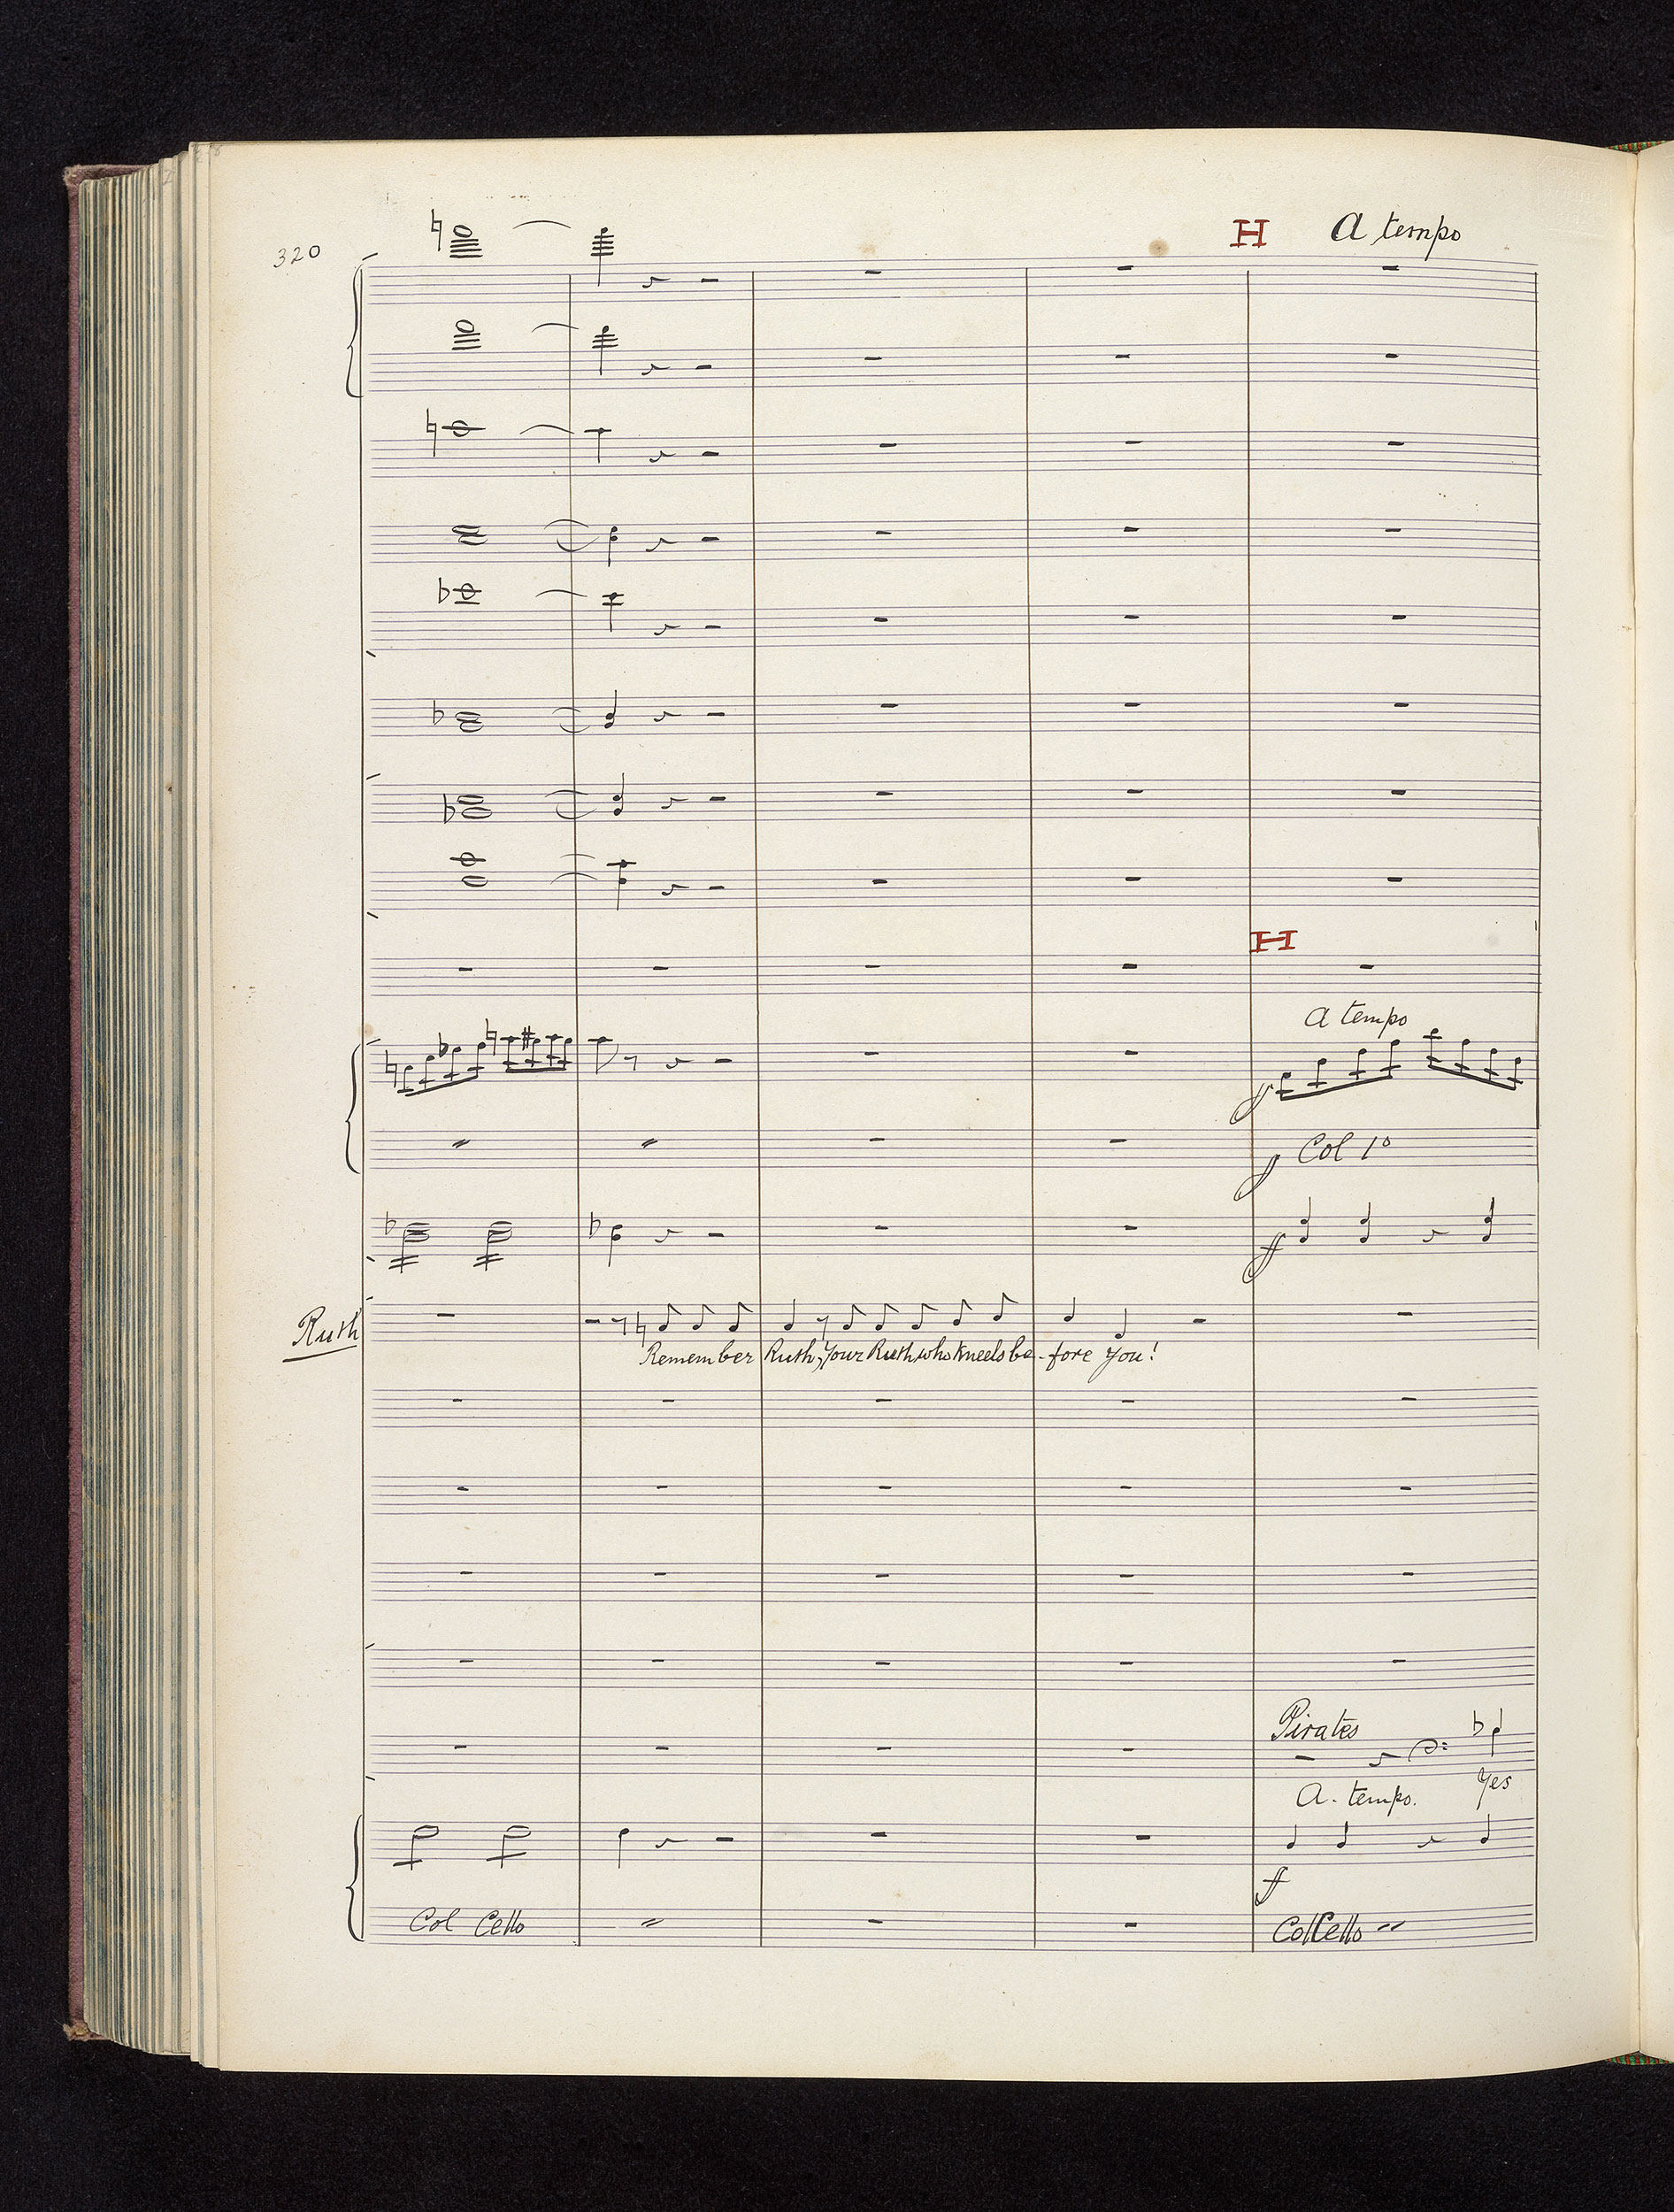 320
H A tempo
H
A tempo
f
f Col 1º
f
Ruth
Remember Ruth, your Ruth, who kneels be-fore you!
Pirates
Yes
A. tempo.
f
Col Cello
Col Cello